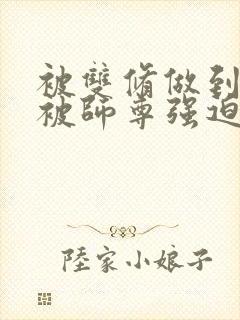 被雙脩做到
被師尊强迫
陸家小娘子